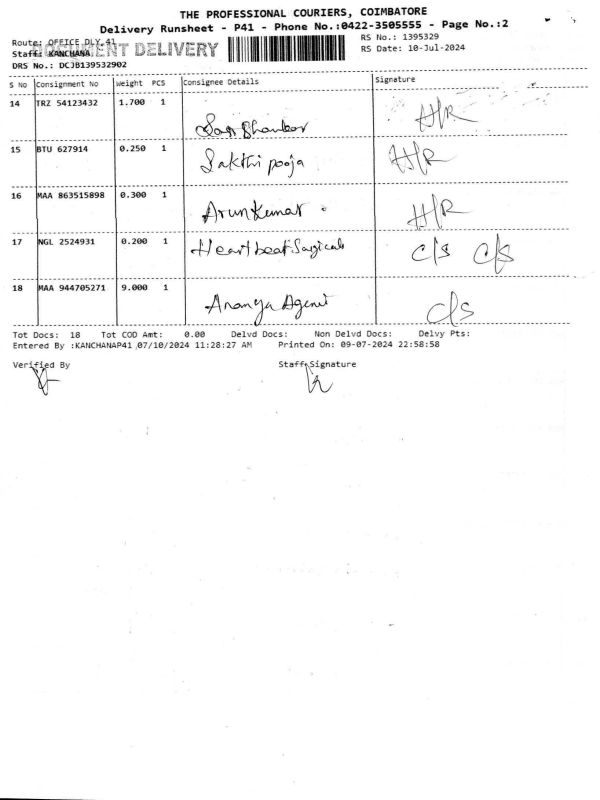 THE PROFESSIONAL COURIERS, COIMBATORE
Delivery Runsheet - P41 - Phone No.:0422-3505555 - Page No.:2
Route: OFFICE DLY 41
DOCUMENT DELIVERY
RS No.: 1395329
Staff: KANCHANA
RS Date: 10-Jul-2024
DRS No.: DCJB139532902
S No Consignment No Weight PCS Consignee Details Signature
14 TRZ 54123432 1.700 1 H/R
15 BTU 627914 0.250 1 Sakthi pooja H/R
16 MAA 863515898 0.300 1 Arun Kumar H/R
17 NGL 2524931 0.200 1 Heart beat Surgicals C/S C/S
18 MAA 944705271 9.000 1 Ananya Agenci C/S
Tot Docs: 18 Tot COD Amt: 0.00 Delvd Docs: Non Delvd Docs: Delvy Pts:
Entered By :KANCHANAP41 ,07/10/2024 11:28:27 AM Printed On: 09-07-2024 22:58:58
Verified By Staff Signature